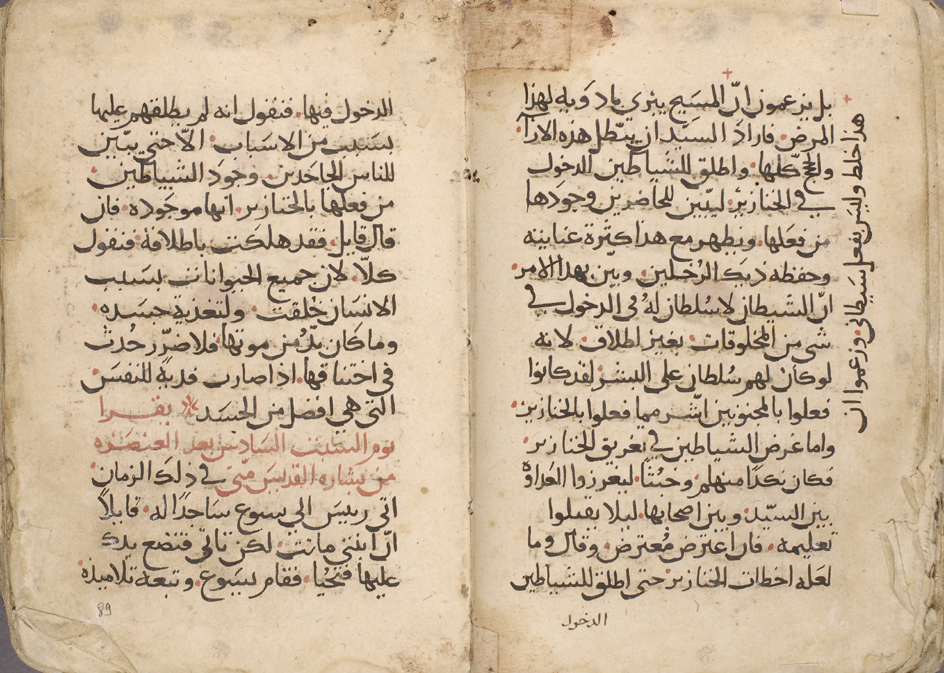 بل يزعمون انّ المسيح يبري بادويه لهذا
المرض فاراد السيد ان يبطل هذه الارآ
والحجج كلها واطلق للشياطين الدخول
في الخنازير ليبين للحاضرين وجودها
من فعلها ويظهر مع هذا كثرة عنايته
وحفظه ذينك الرجلين وبين بهذا الامر
انّ الشيطان لا سلطان له في الدخول في
شي من المخلوقات بغير اطلاق لانه
لو كان لهم سلطان على البشر لقد كانوا
فعلوا بالمجنونين اشر مما فعلوا بالخنازير
واما غرض الشياطين في تغريق الخنازير
فكان نكدًا منهم وخبثًا ليغرزوا العداوة
بين السيّد وبين اصحابها ليلا يقبلوا
تعليمه فان اعترض مُعترض وقال وما
لعله اخطات الخنازير حتى اطلق للشياطين
الدخول
هذا خلط وليس بفعل شيطاني وزعموا ان
الدخول فيها فنقول انه لم يطلقهم عليها
بسبب من الاسباب الّا حتي يبّين
للناس الجاحدين وجود الشياطين
من فعلها بالخنازير انها موجوده فان
قال قايل فقد هلكت باطلاقه فنقول
كلّا لان جميع الحيوانات بسبب
الانسان خلقت ولتغذية جسده
وما كان بدّ من موتها فلا ضرر حدث
في اختناقها اذ اصارت فدية للنفس
التي هي افضل من الجسد يقرا
يوم السبت السادس بعد العنصره
من بشاره القديس متى في ذلك الزمان
اتى رييس الى يسوع ساجدًا له قايلًا
انّ ابنتي ماتت لكن تاتي فتضع يدك
عليها فتحيا فقام يسوع وتبعه تلاميذه
89